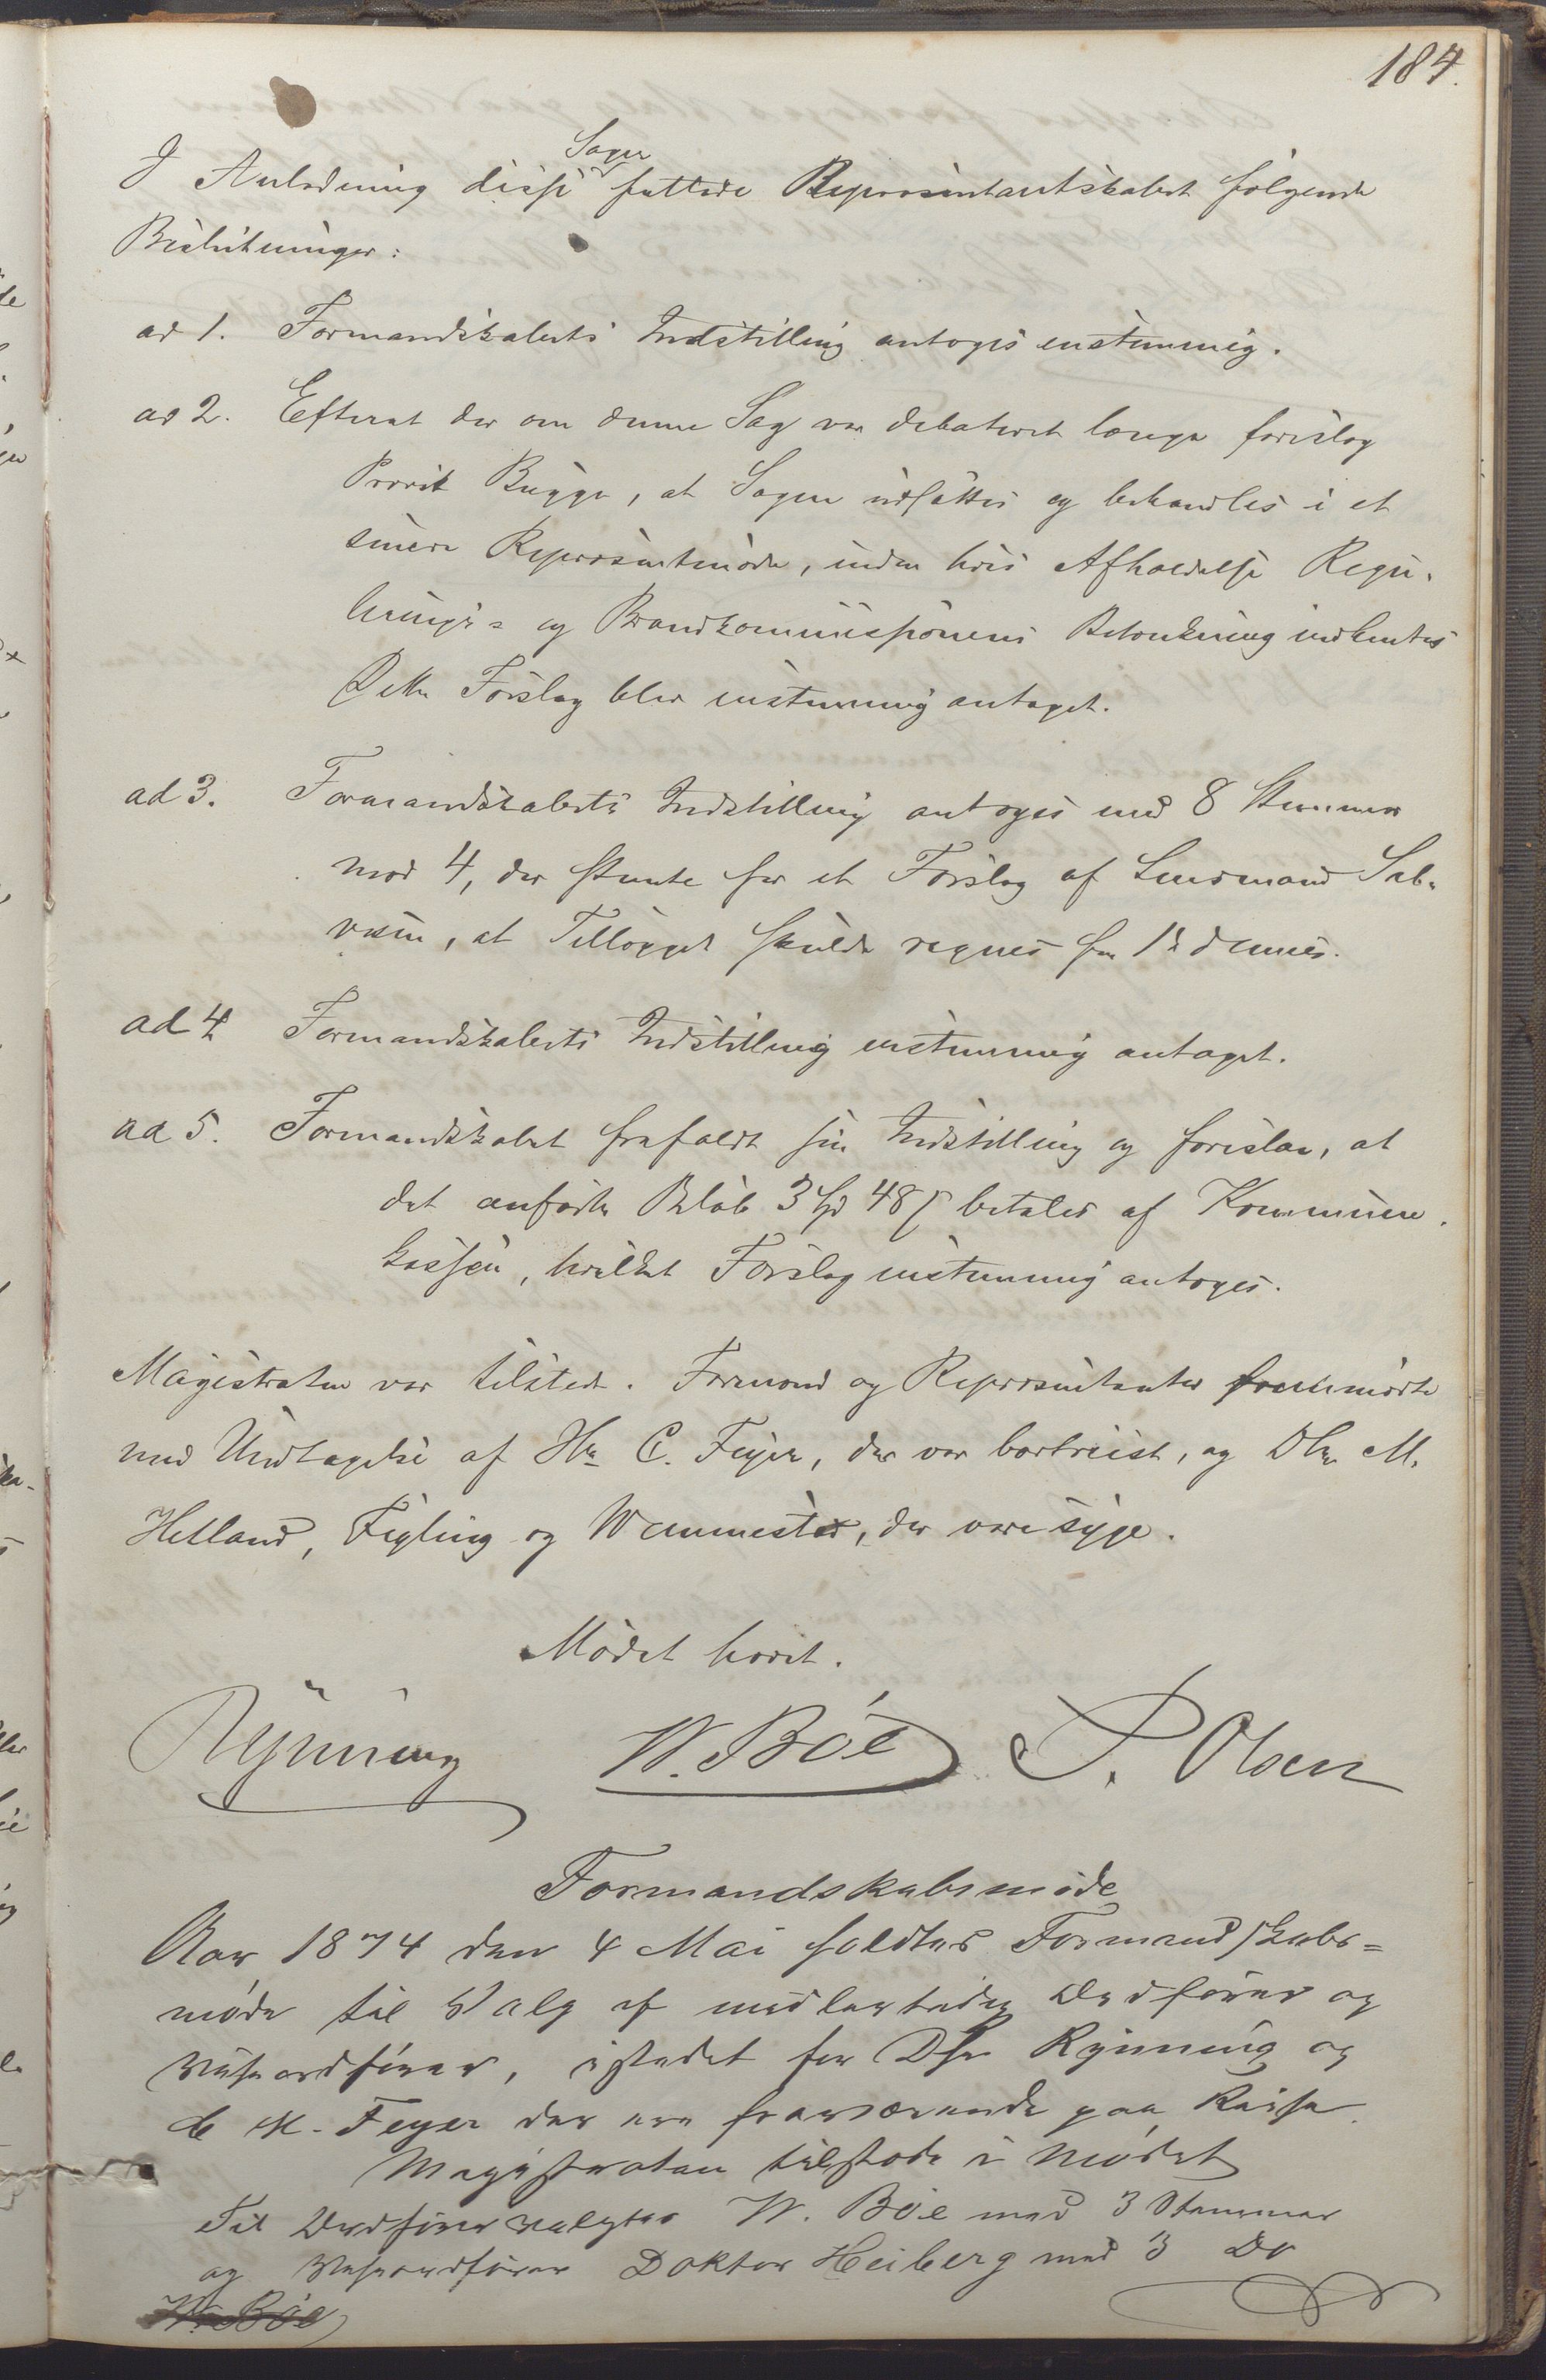 184.
I Anledning disse Sager fattede Repræsentantskabet følgende
Beslutninger:
ad 1. Formandskabets Indstilling antoges enstemmig.
ad 2. Efterat der om denne Sag var debateret længe foreslog
Provst Bugge, at Sagen udsættes og behandles i et
senere Repræsentmøde, inden hvis Afholdelse Regu-
lerings- og Brandkommissionens Betænkning indhentes
Dette Forslag blev enstemmig antaget.
ad 3. Formandskabets Indstilling antoges med 8 Stemmer
mod 4, der stemte for et Forslag af Lensmand Sal-
vesen, at Tillægget skulde regnes fra 1ste dennes.
ad 4 Formandskabets Indstilling enstemmig antaget.
ad 5. Formandskabet frafaldt sin Indstilling og foreslaar, at
det anførte Beløb 3 Spd 48 ß betales af Kommune-
kassen, hvilket Forslag enstemmig antoges.
Magistraten var tilstede. Formænd og Repræsentanter fremmødte
med Undtagelse af Hr C. Feyer, der var bortreist, og DHrr M.
Helland, Figling og Wennested, der vare syge.
Mødet hævet.
Rynning W. Böe P. Olsen
Formandskabsmøde
Aar 1874 den 4 Mai holdtes Formandskabs-
møde til Valg af midlertidig Ordfører og
Viseordfører, istedet for DHr Rynning og
C M. Feyer der ere fraværende paa Reise.
Magistraten tilstede i Mødet
Til Ordfører valgtes W. Böe med 3 Stemmer
og Viseordfører Doktor Heiberg med 3 Do
W. Böe